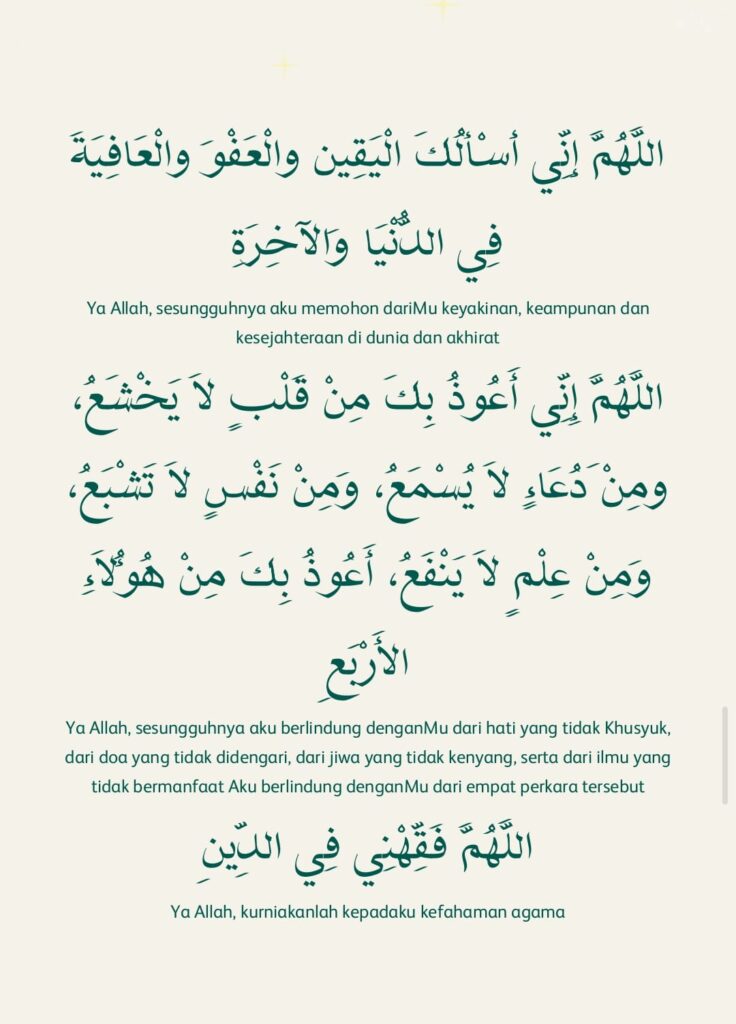 اللَّهُمَّ إِنِّي أسْأَلُكَ الْيَقِين والْعَفْوَ والْعَافِيَةَ
فِي الدُّنْيَا وَالآخِرَةِ
Ya Allah, sesungguhnya aku memohon dariMu keyakinan, keampunan dan
kesejahteraan di dunia dan akhirat
اللَّهُمَّ إِنِّي أَعُوذُ بِكَ مِنْ قَلْبٍ لاَ يَخْشَعُ،
ومِنْ دُعَاءٍ لاَ يُسْمَعُ، وَمِنْ نَفْسٍ لاَ تَشْبَعُ،
وَمِنْ عِلْمٍ لاَ يَنْفَعُ، أَعُوذُ بِكَ مِنْ هُوَُلاَءِ
الأَرْبَعِ
Ya Allah, sesungguhnya aku berlindung denganMu dari hati yang tidak Khusyuk,
dari doa yang tidak didengari, dari jiwa yang tidak kenyang, serta dari ilmu yang
tidak bermanfaat Aku berlindung denganMu dari empat perkara tersebut
اللَّهُمَّ فَقِّهْنِي فِي الدِّينِ
Ya Allah, kurniakanlah kepadaku kefahaman agama